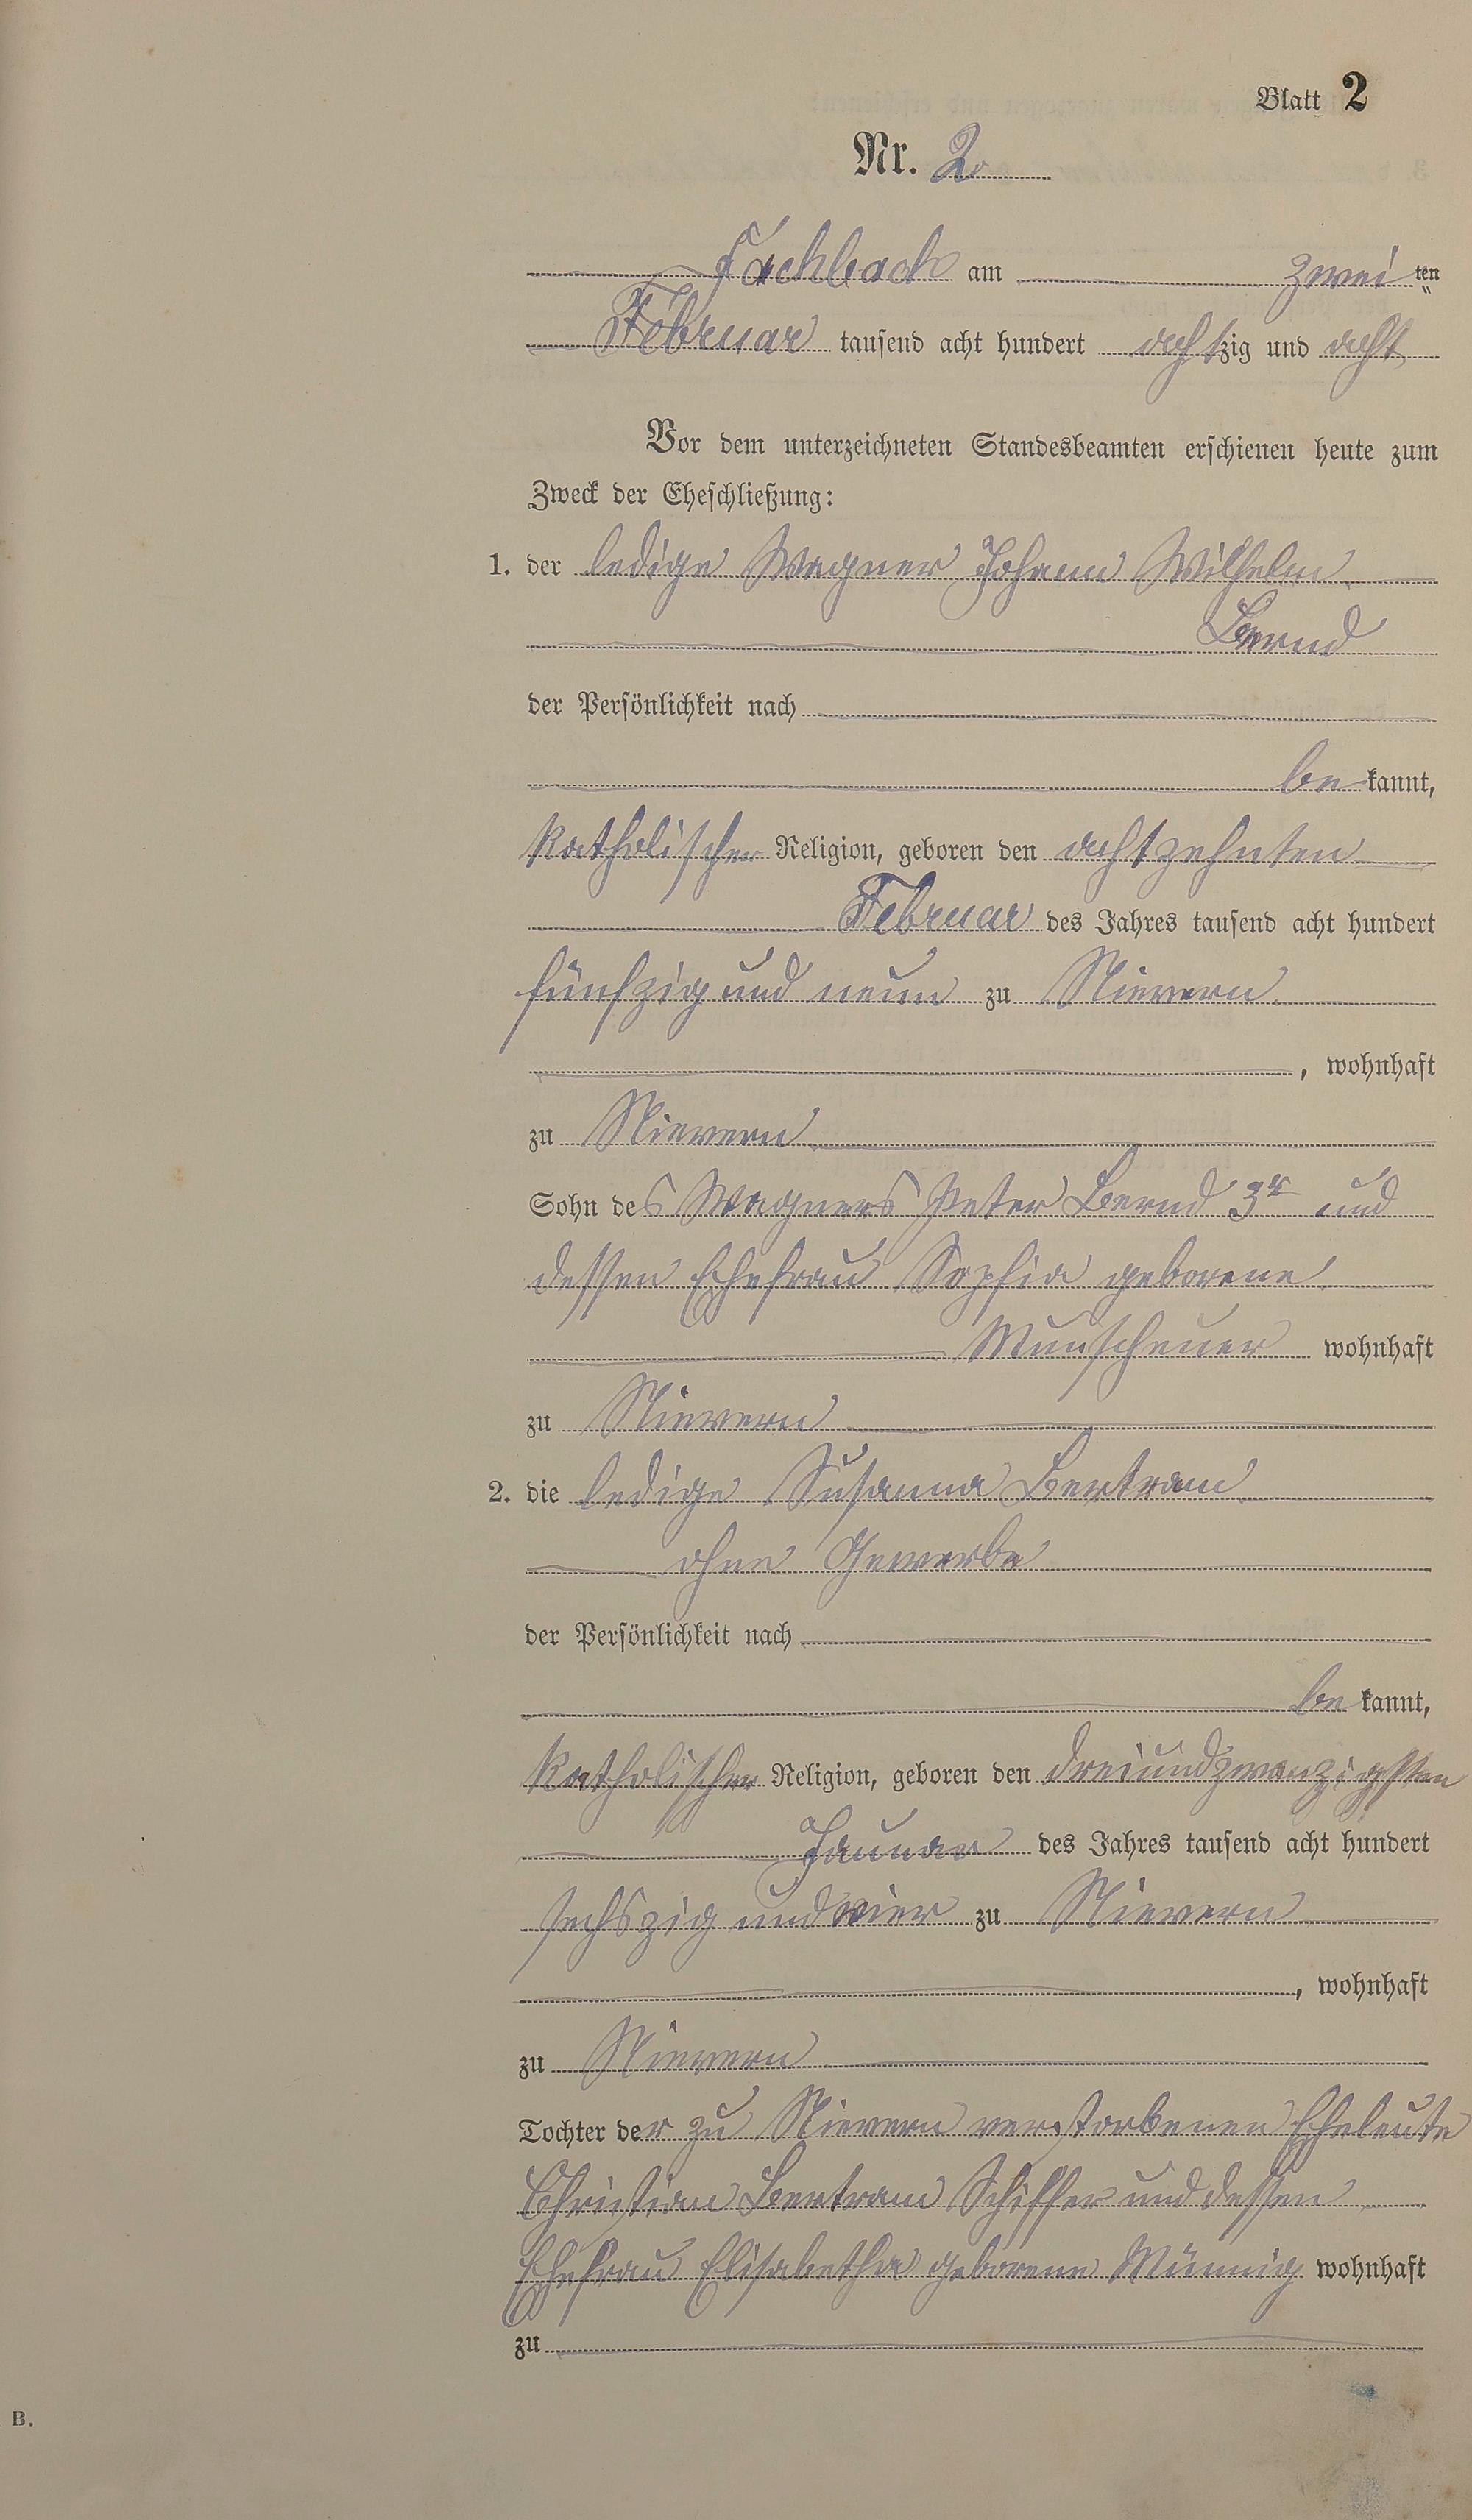 Blatt 2
Nr. 2.
Fachbach am zwei ten
Februar tausend acht hundert achtzig und acht
Vor dem unterzeichneten Standesbeamten erschienen heute zum
Zweck der Eheschließung:
1. der ledige Wagner Johann Wilhelm
Bernd
der Persönlichkeit nach
be kannt,
katholischer Religion, geboren den achtzehnten
Februar des Jahres tausend acht hundert
fünfzig und neun zu Nievern
, wohnhaft
zu Nievern
Sohn des Wagners Peter Bernd 3r und
dessen Ehefrau Sophia geborene
wohnhaft
zu Nievern
2. die ledige Susanna Bertram
ohne Gewerbe
der Persönlichkeit nach
be kannt,
katholischer Religion, geboren den dreiundzwanzigsten
Januar des Jahres tausend acht hundert
sechszig und vier zu Nievern
, wohnhaft
zu Nievern
Tochter der zu Nievern verstorbenen Eheleute
Christian Bertram Schiffer und dessen
Ehefrau Elisabetha geborene wohnhaft
zu
B.